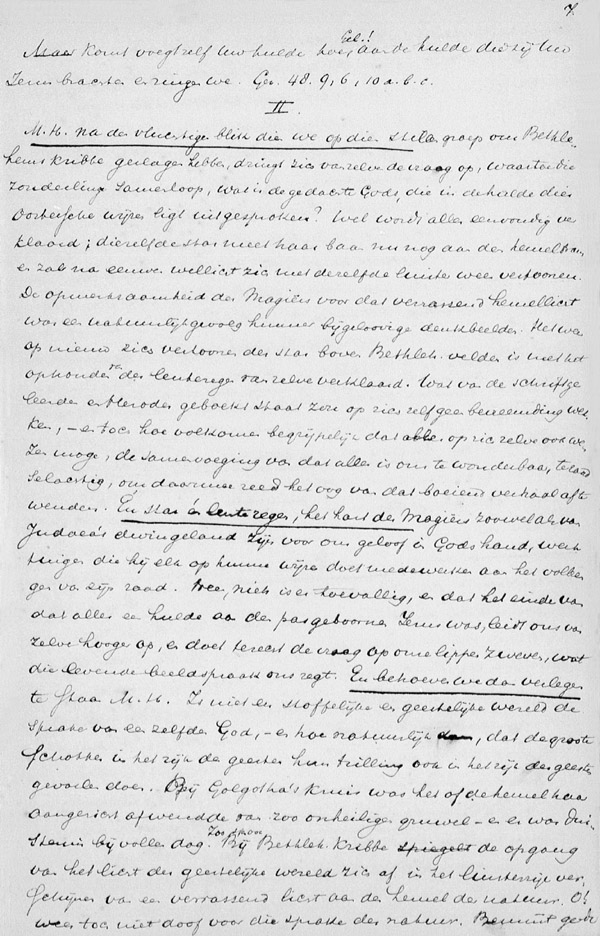 7.
Gel.!
Maar komt voegt zelf Uw hulde aan de hulde die zij Uw
Jezus brachten en zingen we. Gez. 48. 9, 6, 10 a. b. c.
II.
M.H. na den vluchtigen blik die we op dien stillen groep om Bethle-
hems kribbe geslagen hebben, dringt zich van zelve de vraag op, waartoe die
zonderlinge samenloop, wat is de gedachte Gods, die in de hulde dier
Oostersche wijzen ligt uitgesproken? Wel wordt alles eenvoudig ver
klaard; diezelfde star met haar baan nu nog aan den hemel
en zal na eeuwen wellicht zich met denzelfden luister weer vertoonen.
De opmerkzaamheid der Magiërs voor dat verrassend hemellicht
was een natuurlijk gevolg hunner bijgeloovige denkbeelden. Het we
op nieuw zich vertoonen der star boven Bethleh. velden is met het
ophouden van den lenteregen van zelve verklaard. Wat van de schriftge
leerden en Herodes geboekt staat zou op zich zelf geen bevreemding wek
ken, - en toch hoe volkomen begrijpelijk dat alles op zich zelve ook we
zen moge, de samenvoeging van dat alles is ons te wonderbaar, te raad
selachtig, om daarmee reeds het oog van dat boeiend verhaal af te
wenden. En star én lenteregen, het hart der Magiërs zoowel als van
Judaea's dwingeland zijn voor ons geloof in Gods hand, werk
tuigen die hij elk op hunne wijze doet medewerken aan het volbren
gen van zijn raad. Neen, niets is er toevallig, en dat het einde van
dat alles een hulde aan den pasgeboornen Jezus was, leidt ons van
zelve hooger op, en doet tereest de vraag op onze lippen zweven, wat
die levende beeldspraak ons zegt. En behoeven we dan verlegen
te staan M.H. Is niet en stoffelijke en geestelijke wereld de
sprake van een zelfden God, - en hoe natuurlijk, dat de groote
schokken in het rijk der geesten hun trilling ook in het rijk der geesten
gevoelen doen. Bij Golgotha's kruis was het of de hemel haar
aangezicht afwendde van zoo onheiligen gruwel - en er was duis-
sternis bij vollen dag. Bij Bethleh. kribbe spiegelt de opgang
van het licht der geestelijke wereld zich af in het luisterrijk ver
schijnen van een verrassend licht aan den hemel der natuur. O!
wees toch niet doof voor die sprake der natuur. Bemint